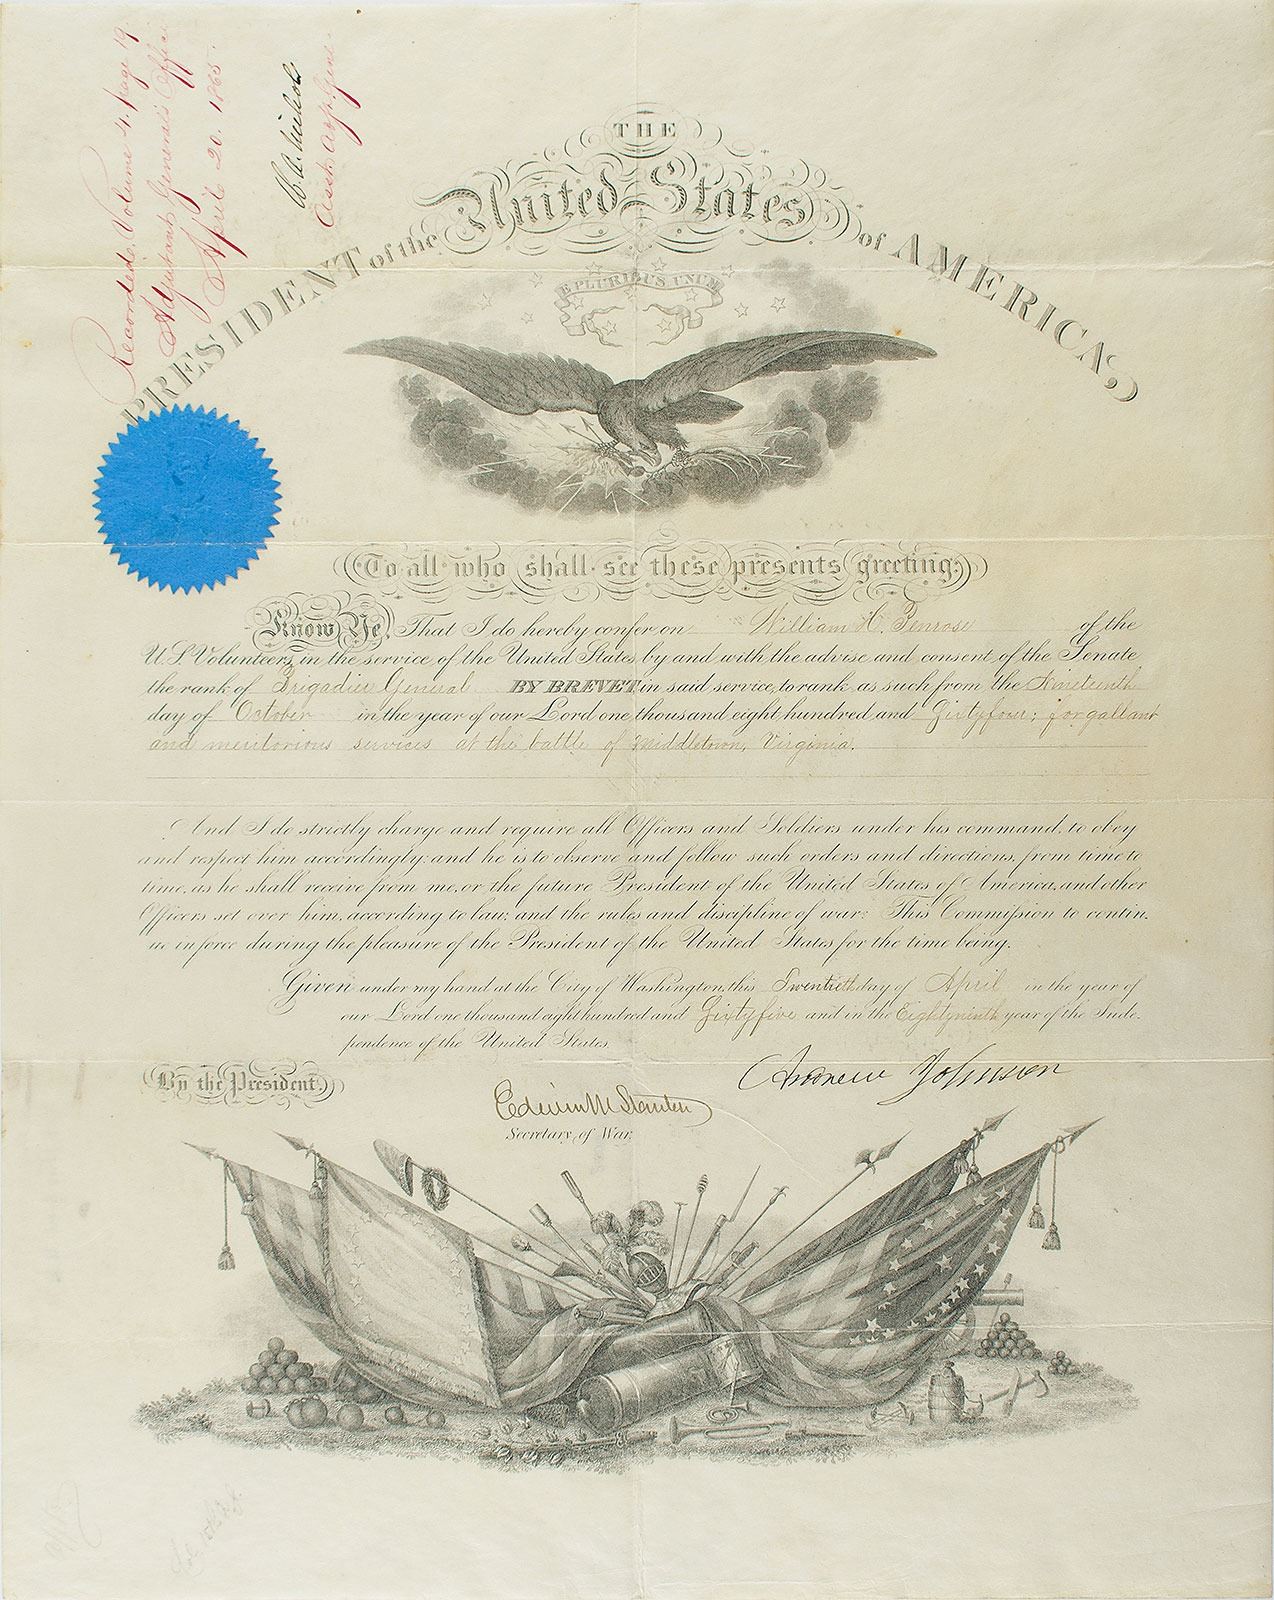 Recorded. Volume 4. page 19
Adjutant General's Office
April 20. 1865.
Asst. Adjt. Genl.
THE
PRESIDENT of the United States of AMERICA,
E PLURIBUS UNUM
To all who shall see these presents greeting:
Know Ye, That I do hereby confer on William H. Penrose of the
U.S. Volunteers, in the service of the United States by and with the advise and consent of the Senate
the rank of Brigadier General BY BREVET in said service, to rank as such from the Nineteenth
day of October in the year of our Lord one thousand eight hundred and Sixty four; for gallant
and meritorious services at the battle of Middletown, Virginia.
And I do strictly charge and require all Officers and Soldiers under his command, to obey
and respect him accordingly: and he is to observe and follow such orders and directions, from time to
time, as he shall receive from me, or the future President of the United States of America, and other
Officers set over him, according to law; and the rules and discipline of war: This Commission to contin.
ue in force during the pleasure of the President of the United States for the time being.
Given under my hand at the City of Washington, this Twentieth day of April in the year of
our Lord one thousand eight hundred and Sixty five and in the Eighty ninth year of the Inde.
pendence of the United States.
By the President,
Andrew Johnson
Edwin M Stanton
Secretary, of War,